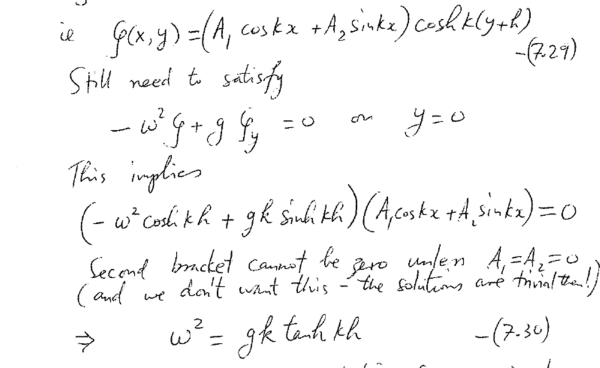 ie φ(x,y) = (A₁ cos kx + A₂ sin kx) cosh k(y+h)
-(7.29)
Still need to satisfy
- ω²φ + g φ_y = 0 on y = 0
This implies
(- ω² cosh kh + gk sinh kh) (A₁ cos kx + A₂ sin kx) = 0
Second bracket cannot be zero unless A₁ = A₂ = 0
(and we don't want this - the solutions are trivial then!)
⇒ ω² = gk tanh kh -(7.30)